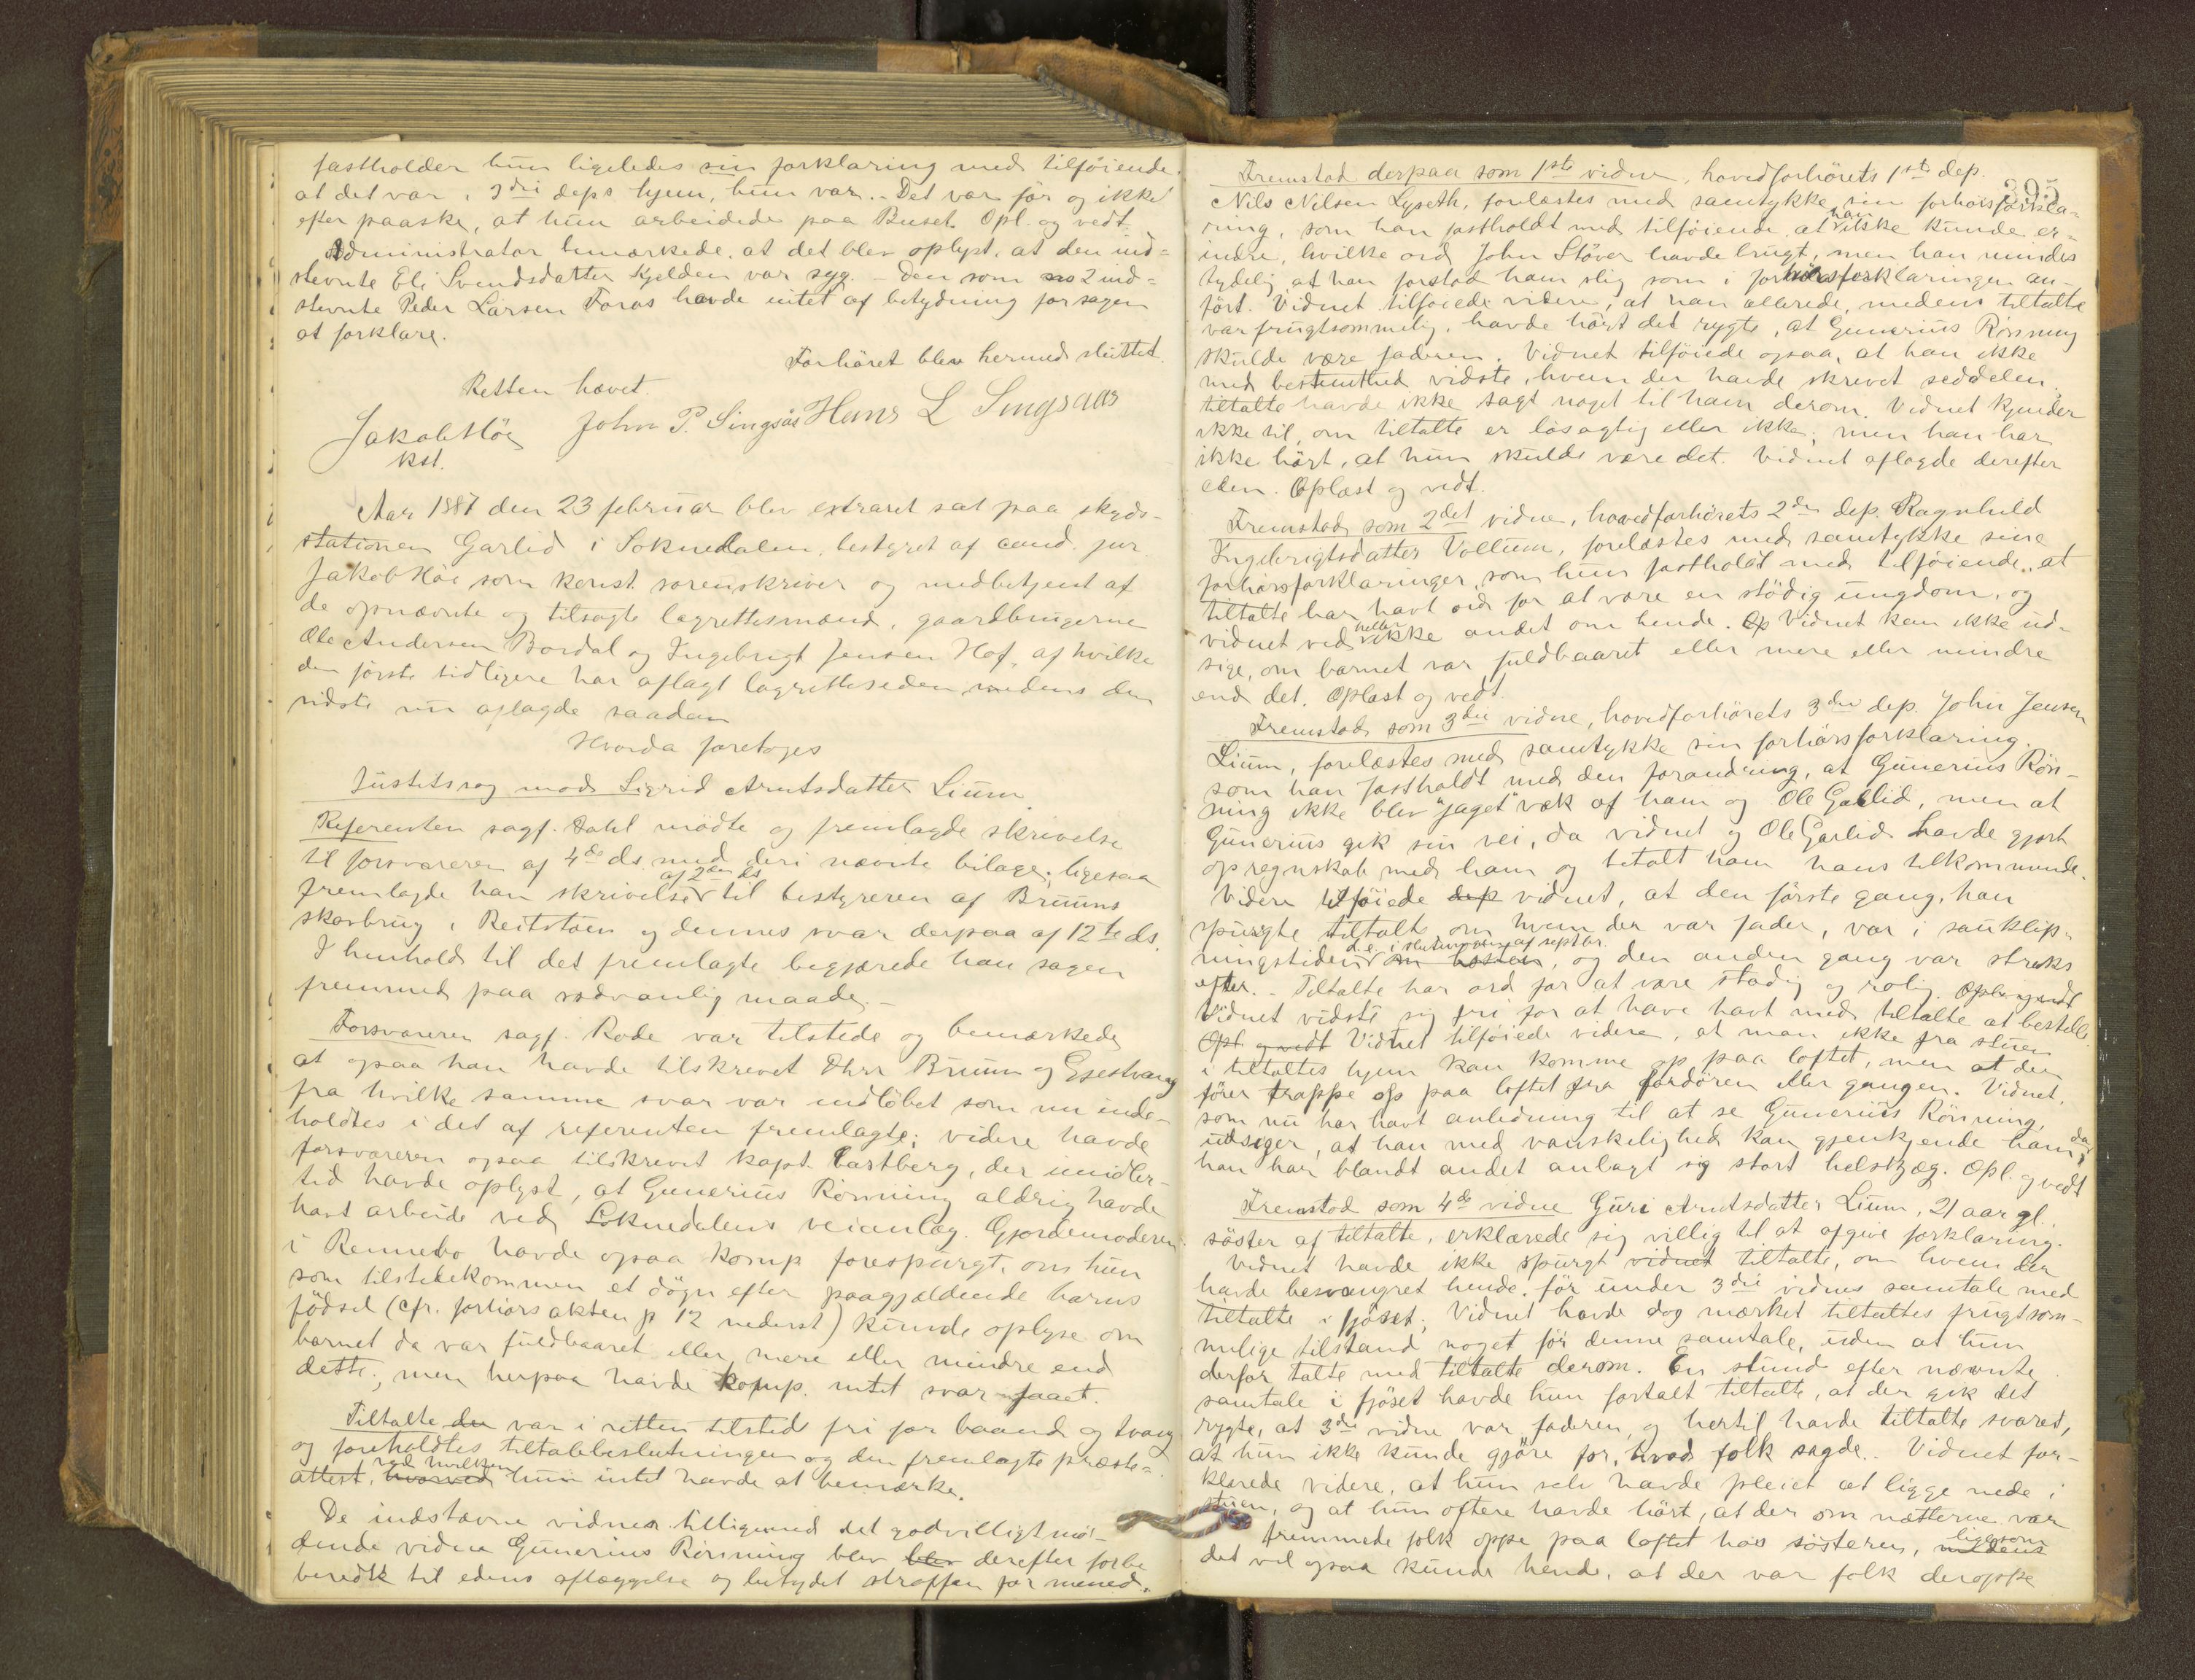 fastholder hun ligeledes sin forklaring med tilføiende,
at det var i 3die deps hjem, hun var. - Det var før og ikke
efter paaske, at hun arbeidede paa Buset. Opl. og vedt.
Administrator bemærkede, at det blev oplyst, at den ind-
stevnte Eli Svendsdatter Kjelden var syg. - Den som no 2 ind-
stevnte Peder Larsen Foros havde intet af betydning for sagen
at forklare.
Forhöret blev hermed sluttet.
Retten hævet.
Jakob Höe John P. Singsås Hans L Singsaas
kst.
Aar 1887 den 23 februar blev extraret sat paa skyds-
stationen Garlid i Soknedalen, bestyret af cand. jur.
Jakob Höe som konst. sorenskriver og medbetjent af
de opnævnte og tilsagte lagrettesmænd, gaardbrugerne
Ole Andersen Bordal og Ingebrigt Jensen Hof, af hvilke
den förste tidligere har aflagt lagretteseden medens den
sidste nu aflagde saadan
Hvorda foretoges
Justitssag mod Sigrid Arntsdatter Lium.
Referenten sagf. Dahl mödte og fremlagde skrivelse
til forsvareren af 4de ds. med deri nævnte bilage; ligesaa
fremlagde han skrivelse af 2den ds til bestyreren af Bruuns
skovbrug i Reitstöen og dennes svar derpaa af 12te ds.
I henhold til det fremlagte begjærede han sagen
fremmed paa sædvanlig maade. -
Forsvareren sagf. Rode var tilstede og bemærkede
at ogsaa han havde tilskrevet Dhrr Bruun og Gjestvang
fra hvilke samme svar var indlöbet som nu inde-
holdtes i det af referenten fremlagte; videre havde
forsvareren ogsaa tilskrevet kapt. Castberg, der imidler-
tid havde oplyst, at Gunerius Rönning aldrig havde
havt arbeide ved Soknedalens veianlæg. Gjordemoderen
i Rennebo havde ogsaa komp forespurgt, om hun
som tilstedekommen et dögn efter paagjældende barns
födsel (cfr. forhörs akten p 12 nederst) kunde oplyse om
barnet da var fuldbaaret eller mere eller mindre end
dette; men herpaa havde komp. intet svar faaet.
Tiltalte den var i retten tilsted fri for baand og tvang
og foreholdtes tiltalebeslutningen og den fremlagte præste-
attest, hvorved ved hvilken hun intet havde at bemærke.
De indstævnte vidner tilligemed det godvilligt mö-
dende vidne Gunerius Rönning blev blev derefter forbe
beredt til edens aflæggelse og betydet straffen for mened.
395
Fremstod derpaa som 1ste vidne, hovedforhörets 1ste dep.
Nils Nilsen Lyseth, forelæstes med samtykke sin forhörsforkla-
ring, som han fastholdt med tilföiende, at han ikke kunde er-
indre, hvilke ord John Stöver havde brugt, men han mindes
tydelig, at han forstod ham slig som i forhörsforklaringen an-
fört. Vidnet tilföiede videre, at han allerede, medens tiltalte
var frugtsommelig, havde hört det rygte, at Gunerius Rönning
skulde være faderen. Vidnet tilföiede ogsaa, at han ikke
med bestemthed vidste, hvem der havde skrevet seddelen;
tiltalte havde ikke sagt noget til ham derom. Vidnet kjender
ikke til, om tiltalte er lösagtig eller ikke; men han har
ikke hört, at hun skulde være det. Vidnet aflagde derefter
eden. Oplæst og vedt.
Fremstod som 2det vidne, hovedforhörets 2den dep. Ragnhild
Ingebrigtsdatter Vollum, forelæstes med samtykke sine
forhörsforklaringer, som hun fastholdt med tilföiende, at
tiltalte har havt ord for at være en stödig ungdom, og
vidnet ved heller ikke andet om hende. Op Vidnet kan ikke ud-
sige, om barnet var fuldbaaret eller mere eller mindre
end det. Oplæst og vedt.
Fremstod som 3die vidne, hovedforhörets 3die dep. John Jensen
Lium, forelæstes med samtykke sin forhörsforklaring,
som han fastholdt med den forandring, at Gunerius Rön-
ning ikke blev "jaget" væk af ham og Ole Garlid, men at
Gunerius gik sin vei, da vidnet og Ole Garlid havde gjort
op regnskab med ham og betalt ham hans tilkommende.
Videre tilföiede dep vidnet, at den förste gang, han
spurgte tiltalte om hvem der var fader, var i sauklip-
ningstiden d.e. i slutningen af septbr. om hösten, og den anden gang var straks
efter. - Tiltalte har ord for at være stadig og rolig. Opl. og vedt
Vidnet vidste sig fri for at have havt med tiltalte at bestille.
Opl. og vedt Vidnet tilföiede videre, at man ikke fra stuen
i tiltaltes hjem kan komme op paa loftet, men at der
förer trappe op paa loftet fra fordören eller gangen. Vidnet,
som nu har havt anledning til at se Gunerius Rönning,
udsiger, at han med vanskelighed kan gjenkjende ham, da
han har blandt andet anlagt sig stort helskjæg. Opl. og vedt
Fremstod som 4de vidne Guri Arntsdatter Lium, 21 aar gl.,
söster af tiltalte, erklærede sig villig til at afgive forklaring.
Vidnet havde ikke spurgt vidnet tiltalte, om hvem der
havde besvangret hende, før under 3die vidnes samtale med
tiltalte i fjöset; Vidnet havde dog mærket tiltaltes frugtsom-
melige tilstand noget för denne samtale, uden at hun
derfor talte med tiltalte derom. En stund efter nævnte
samtale i fjöset havde hun fortalt tiltalte, at der gik det
rygte, at 3die vidne var faderen, og hertil havde tiltalte svaret,
at hun ikke kunde gjöre for, hvad folk sagde. - Vidnet for-
klarede videre, at hun selv havde pleiet at ligge nede i
stuen, og at hun oftere havde hört, at der om nætterne var
fremmede folk oppe paa loftet hos sösteren, medens ligesom
det vel ogsaa kunde hende, at der var folk deroppe